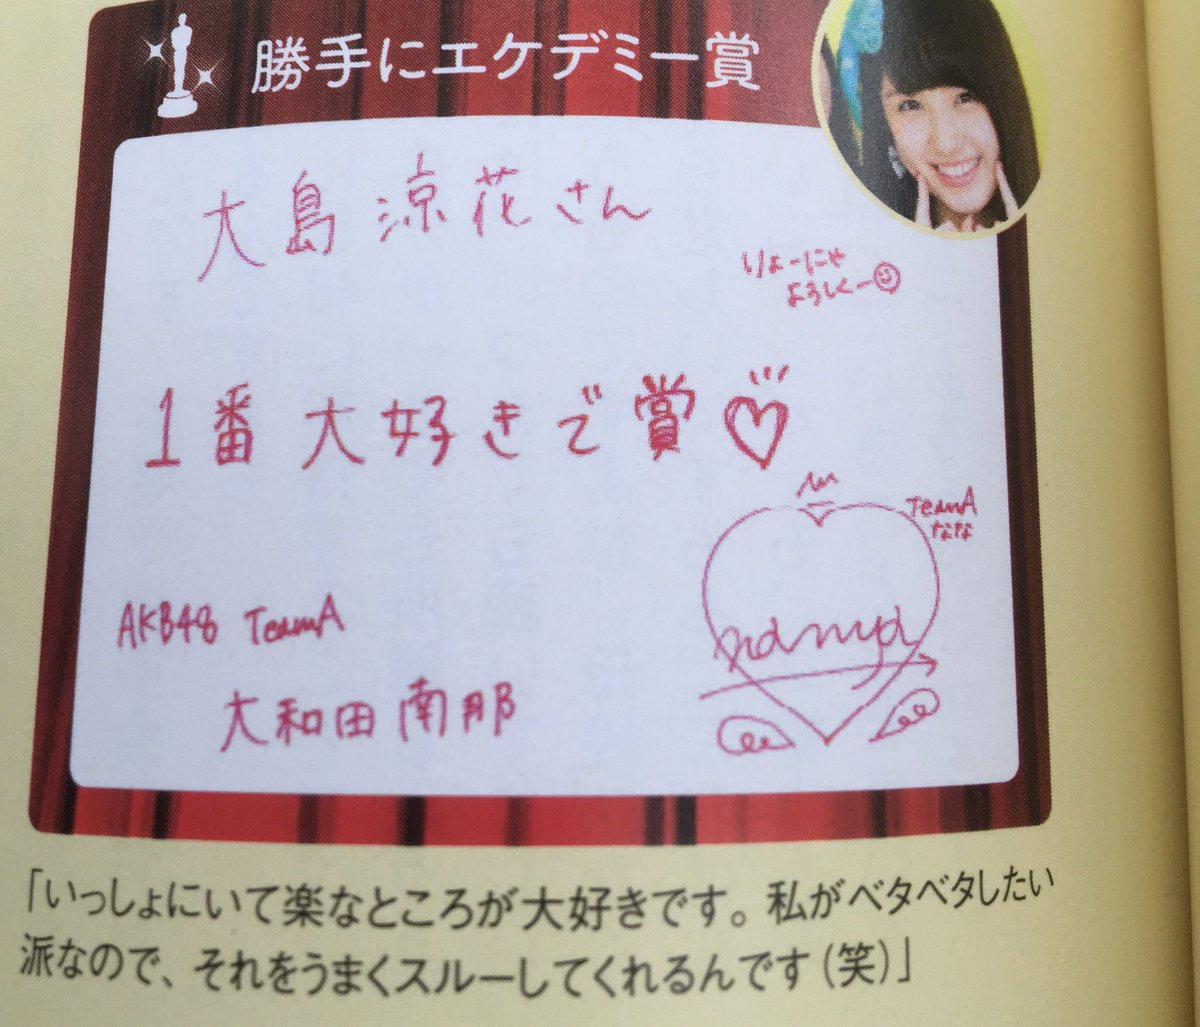 勝手にエケデミー賞
大島 涼花さん
りょーにゃ
よろしくー
1番 大好きで賞♡
TeamA
なな
nanya
AKB48 TeamA
大和田 南那
「いっしょにいて楽なところが大好きです。私がベタベタしたい
派なので、それをうまくスルーしてくれるんです(笑)」